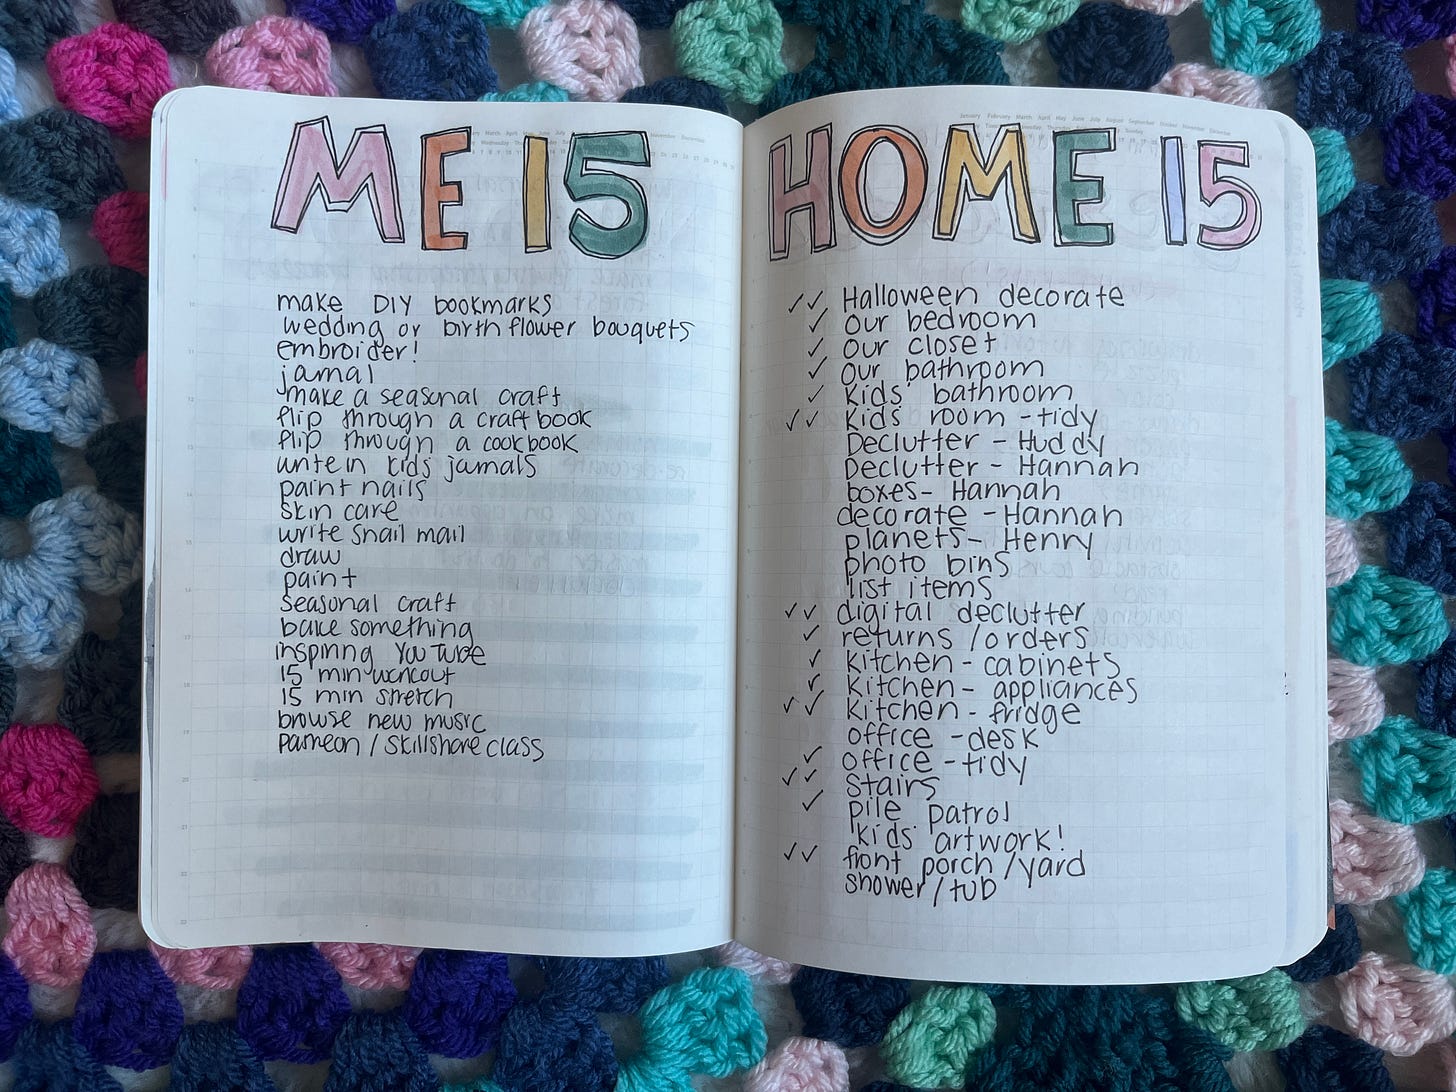 ME 15
make DIY bookmarks
wedding or birth flower bouquets
embroider!
jamal
make a seasonal craft
flip through a craft book
flip through a cookbook
write in kids jamals
paint nails
skin care
write snail mail
draw
paint
seasonal craft
bake something
inspiring YouTube
15 min workout
15 min stretch
browse new music
Patreon / Skillshare class
HOME 15
✓✓ Halloween decorate
✓ our bedroom
✓ our closet
✓ our bathroom
✓ kids' bathroom
✓✓ kids' room - tidy
Declutter - Huddy
Declutter - Hannah
boxes - Hannah
decorate - Hannah
planets - Henry
photo bins
list items
✓✓ digital declutter
✓ returns / orders
✓ kitchen - cabinets
✓ kitchen - appliances
✓✓ kitchen - fridge
office - desk
✓ office - tidy
✓✓ stairs
✓ pile patrol
kids' artwork!
✓✓ front porch / yard
shower / tub